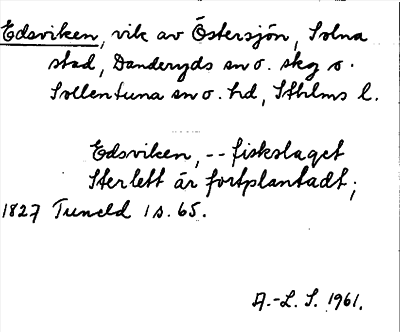 Edsviken, vik av Östersjön, Solna
stad, Danderyds sn o. skg o.
Sollentuna sn o. hd, Sthlms l.
Edsviken, -- fiskslaget
Sterlett är fortplantadt;
1827 Tuneld 1 s. 65.
A.-L. S. 1961.